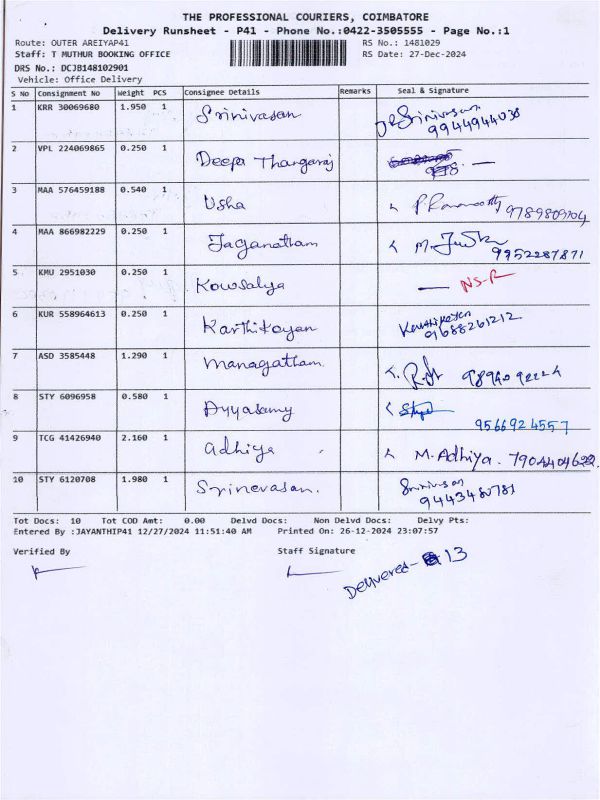 THE PROFESSIONAL COURIERS, COIMBATORE
Delivery Runsheet - P41 - Phone No.:0422-3505555 - Page No.:1
Route: OUTER AREIYAP41 RS No.: 1481029
Staff: T MUTHUR BOOKING OFFICE RS Date: 27-Dec-2024
DRS No.: DCJB148102901
Vehicle: Office Delivery
S No Consignment No Weight PCS Consignee Details Remarks Seal & Signature
1 KRR 30069680 1.950 1 Srinivasan Srinivasan
9944944038
2 VPL 224069865 0.250 1 Deepa Thangaraj —
3 MAA 576459188 0.540 1 Usha 9789809104
4 MAA 866982229 0.250 1 Jaganatham M.
9952287871
5 KMU 2951030 0.250 1 Kowsalya — NS-R
6 KUR 558964613 0.250 1 Karthikayan Karthikeyan
9688261212
7 ASD 3585448 1.290 1 Managatham
8 STY 6096958 0.580 1 Ayyasamy
9566924557
9 TCG 41426940 2.160 1 adhiya M. Adhiya. 7904404622
10 STY 6120708 1.980 1 Srinevasan. Srinivasan
9443480781
Tot Docs: 10 Tot COD Amt: 0.00 Delvd Docs: Non Delvd Docs: Delvy Pts:
Entered By :JAYANTHIP41 12/27/2024 11:51:40 AM Printed On: 26-12-2024 23:07:57
Verified By Staff Signature
Delivered- 13